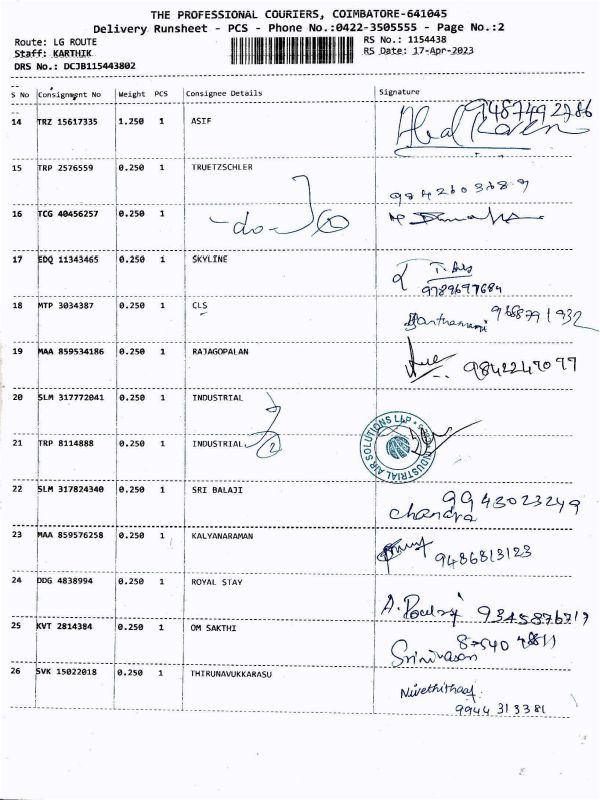 THE PROFESSIONAL COURIERS, COIMBATORE-641045
Delivery Runsheet - PCS - Phone No.:0422-3505555 - Page No.:2
Route: LG ROUTE RS No.: 1154438
Staff: KARTHIK RS Date: 17-Apr-2023
DRS No.: DCJB115443802
S No Consignment No Weight PCS Consignee Details Signature
9487492786
14 TRZ 15617335 1.250 1 ASIF
15 TRP 2576559 0.250 1 TRUETZSCHLER
16 TCG 40456257 0.250 1
-do-
17 EDQ 11343465 0.250 1 SKYLINE
9789697684
18 MTP 3034387 0.250 1 CLS
19 MAA 859534186 0.250 1 RAJAGOPALAN
9842247077
20 SLM 317772041 0.250 1 INDUSTRIAL
21 TRP 8114888 0.250 1 INDUSTRIAL 2
INDUSTRIAL AIR SOLUTIONS LLP
22 SLM 317824340 0.250 1 SRI BALAJI
9943023249
chandra
23 MAA 859576258 0.250 1 KALYANARAMAN
9486813123
24 DDG 4838994 0.250 1 ROYAL STAY
9345876717
25 KVT 2814384 0.250 1 OM SAKTHI
Srinivasan
26 SVK 15022018 0.250 1 THIRUNAVUKKARASU
Nivethithaa
9944313381